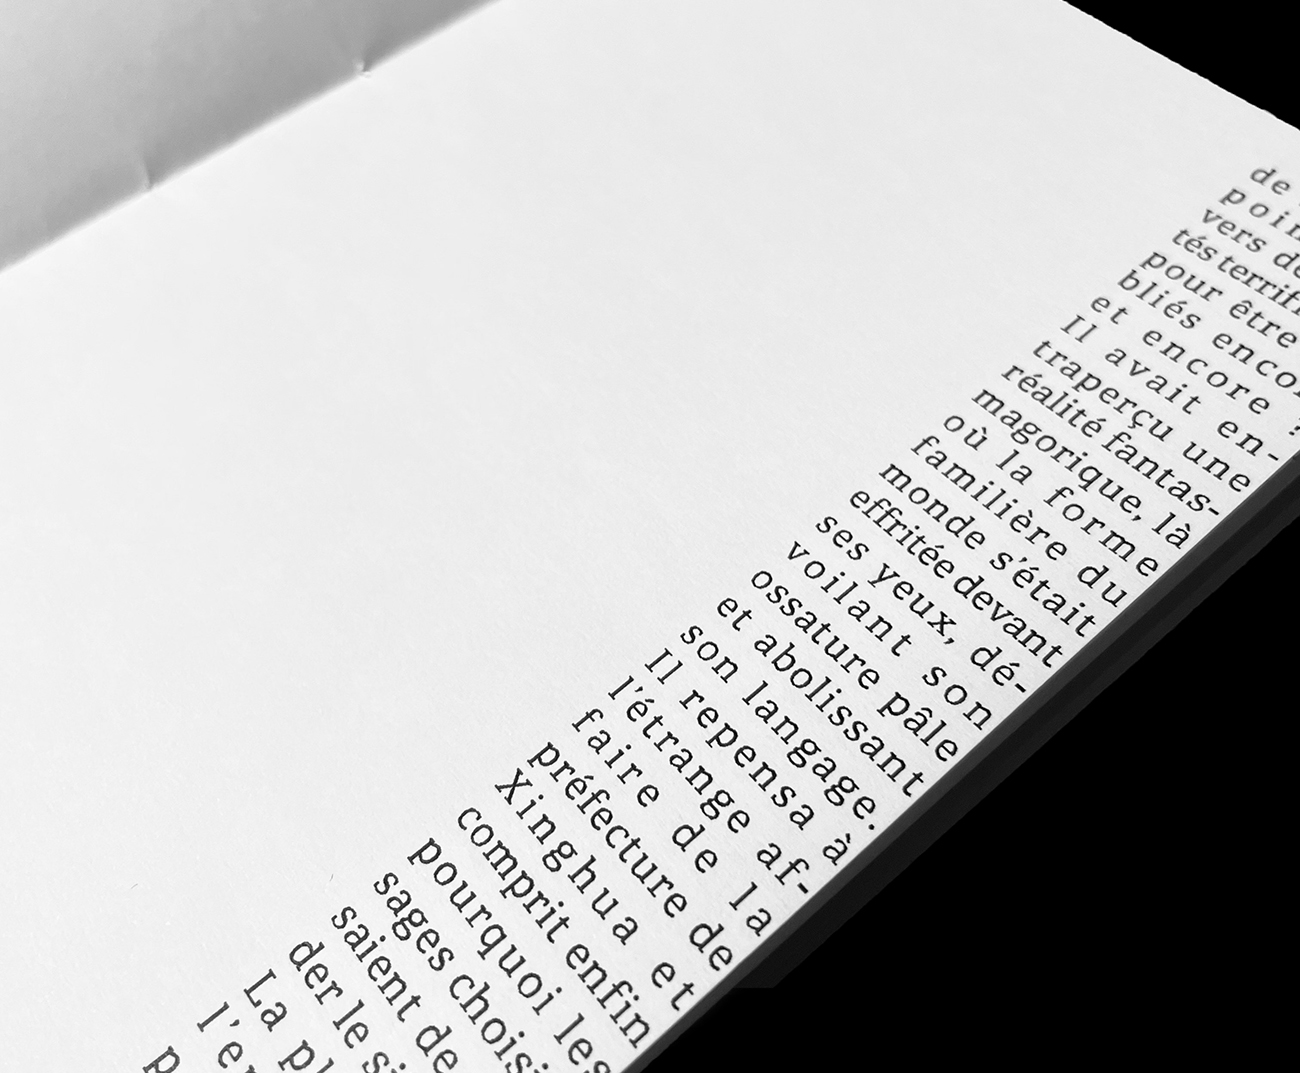 de
poin
vers de
tés terrifi
pour être
bliés enco
et encore ?
Il avait en-
traperçu une
réalité fantas-
magorique, là
où la forme
familière du
monde s'était
effritée devant
ses yeux, dé-
voilant son
ossature pâle
et abolissant
son langage.
Il repensa à
l'étrange af-
faire de la
préfecture de
Xinghua et
comprit enfin
pourquoi les
sages choisi
saient de
der le si
La pl
l'e
p